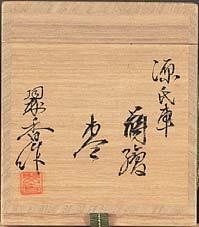 源氏車
蒔繪
棗
翠香作